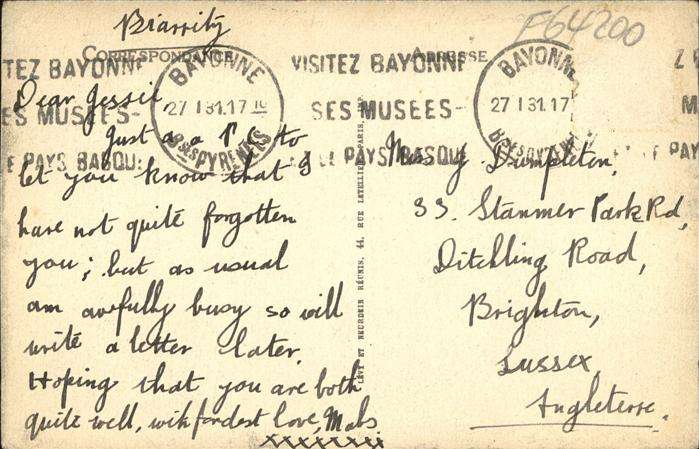 Biarritz
F64200
CORRESPONDANCE
ADRESSE
TEZ BAYONNE
ES MUSEES-
E PAYS BASQUE
BAYONNE
27 1 31.17 10
BSES PYRENEES
VISITEZ BAYONNE
SES MUSEES-
LE PAYS BASQUE
BAYONNE
27 1 31.17
Dear Jessie
Just a P.C. to
let you know that I
have not quite forgotten
you; but as usual
am awfully busy so will
write a letter later.
Hoping that you are both
quite well, with fondest love, Mabs.
xxxxxxxxx
LÉVY ET NEURDEIN RÉUNIS, 44, RUE LETELLIER, PARIS
Miss J. Dumpleton,
33. Stanmer Park Rd,
Ditchling Road,
Brighton,
Sussex
Angleterre.